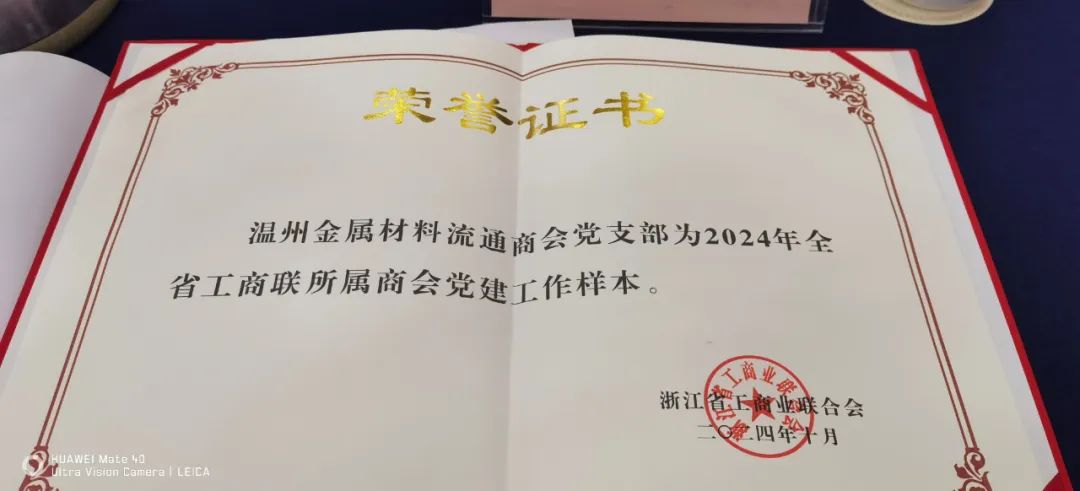 荣誉证书
温州金属材料流通商会党支部为2024年全
省工商联所属商会党建工作样本。
浙江省工商业联合会
二〇二四年十月
浙江省工商业联合会
HUAWEI Mate 40
Ultra Vision Camera | LEICA